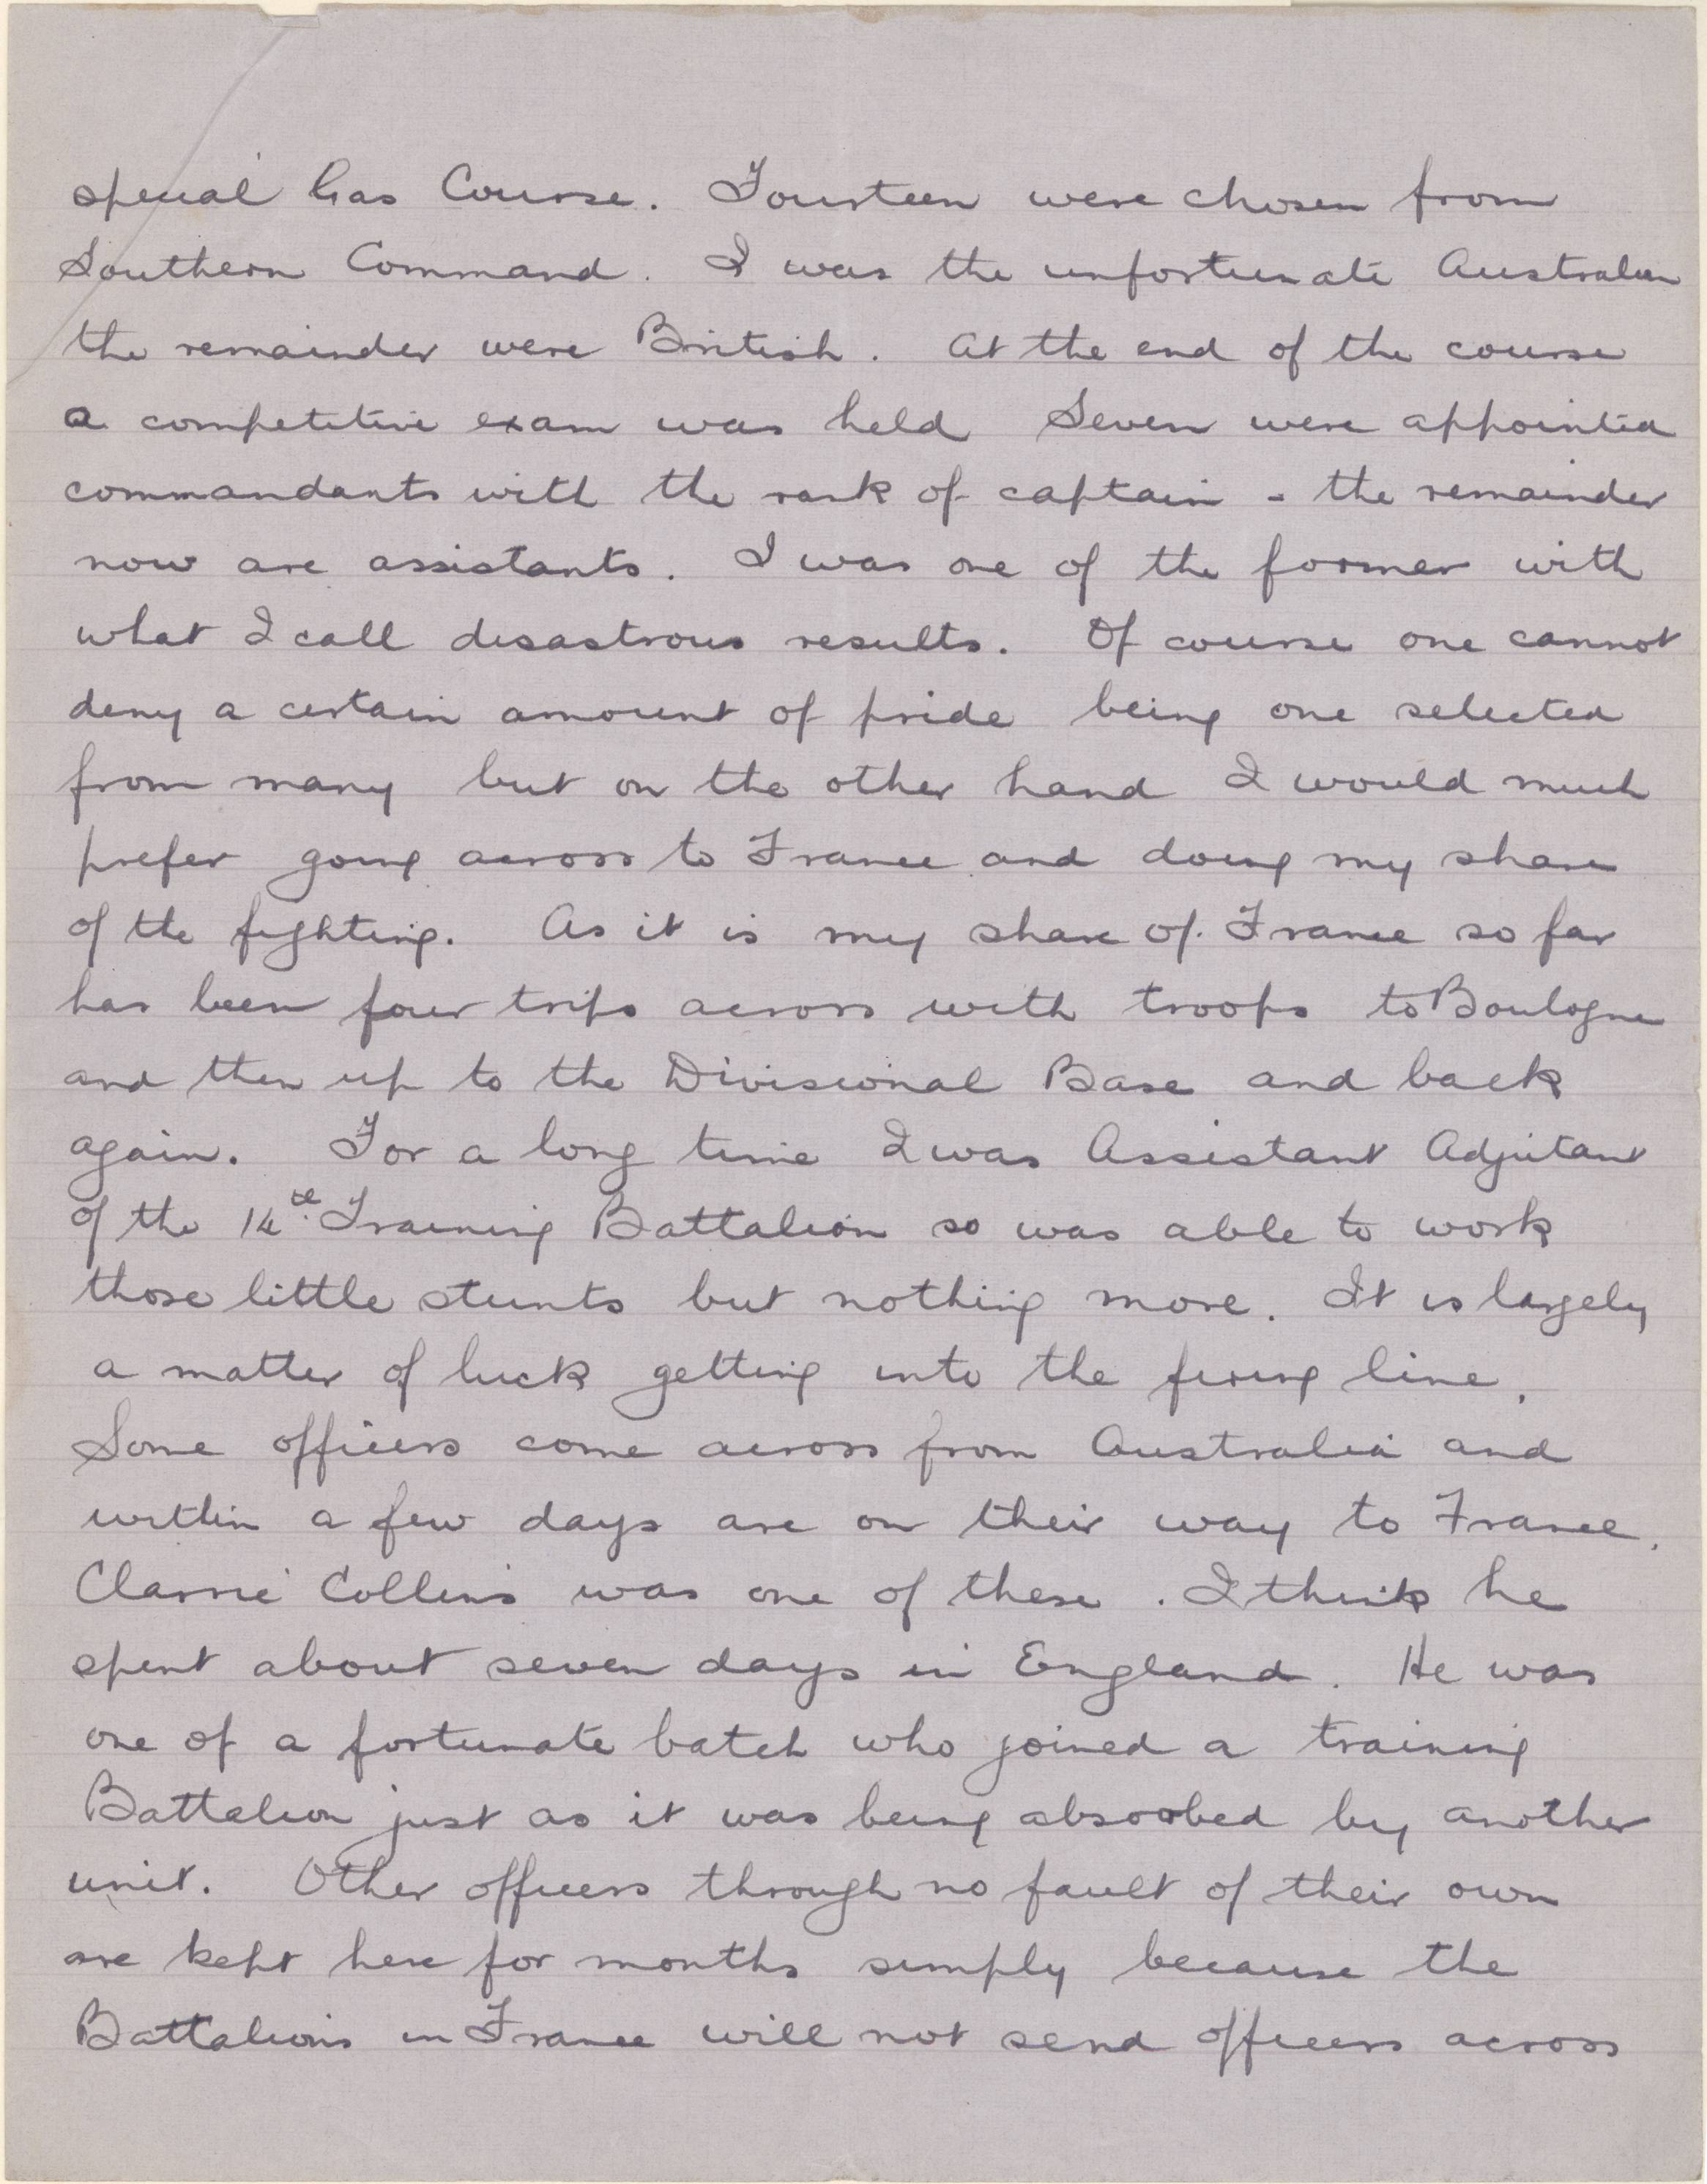 special Gas Course. Fourteen were chosen from
Southern Command. I was the unfortunate Australian
the remainder were British. At the end of the course
a competitive exam was held Seven were appointed
commandants with the rank of captain - the remainder
now are assistants. I was one of the former with
what I call disastrous results. Of course one cannot
deny a certain amount of pride being one selected
from many but on the other hand I would much
prefer going across to France and doing my share
of the fighting. As it is my share of France so far
has been four trips across with troops to Boulogne
and then up to the Divisional Base and back
again. For a long time I was Assistant Adjutant
of the 14th Training Battalion so was able to work
those little stunts but nothing more. It is largely
a matter of luck getting into the firing line.
Some officers come across from Australia and
within a few days are on their way to France.
Clarrie Collins was one of these. I think he
spent about seven days in England. He was
one of a fortunate batch who joined a training
Battalion just as it was being absorbed by another
unit. Other officers through no fault of their own
are kept here for months simply because the
Battalions in France will not send officers across